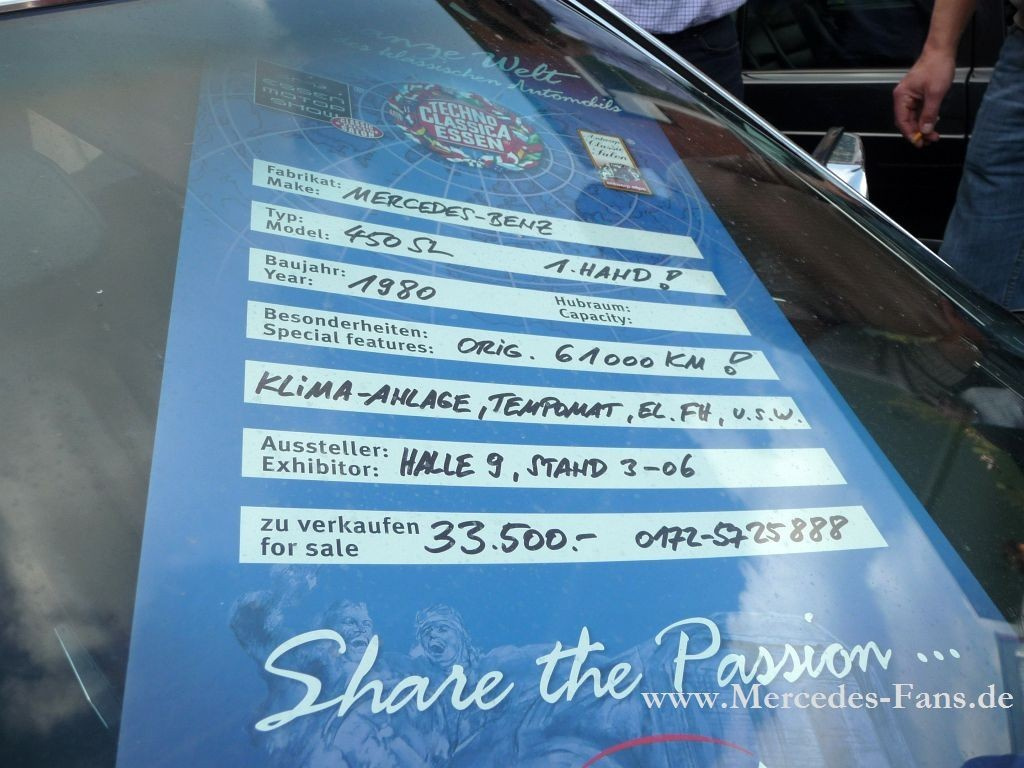 Welt
klassischen Automobils
ESSEN
MOTOR
SHOW
CLASSIC
SALON
TECHNO
CLASSICA
ESSEN
Antwerp
Classic
Salon
Fabrikat:
Make: MERCEDES-BENZ
Typ:
Model: 450 SL 1. HAND!
Baujahr:
Year: 1980
Hubraum:
Capacity:
Besonderheiten:
Special features: ORIG. 61000 KM!
KLIMA-ANLAGE, TEMPOMAT, EL. FH, U.S.W.
Aussteller:
Exhibitor: HALLE 9, STAND 3-06
zu verkaufen
for sale 33.500.- 0172-5725888
Share the Passion ...
www.Mercedes-Fans.de